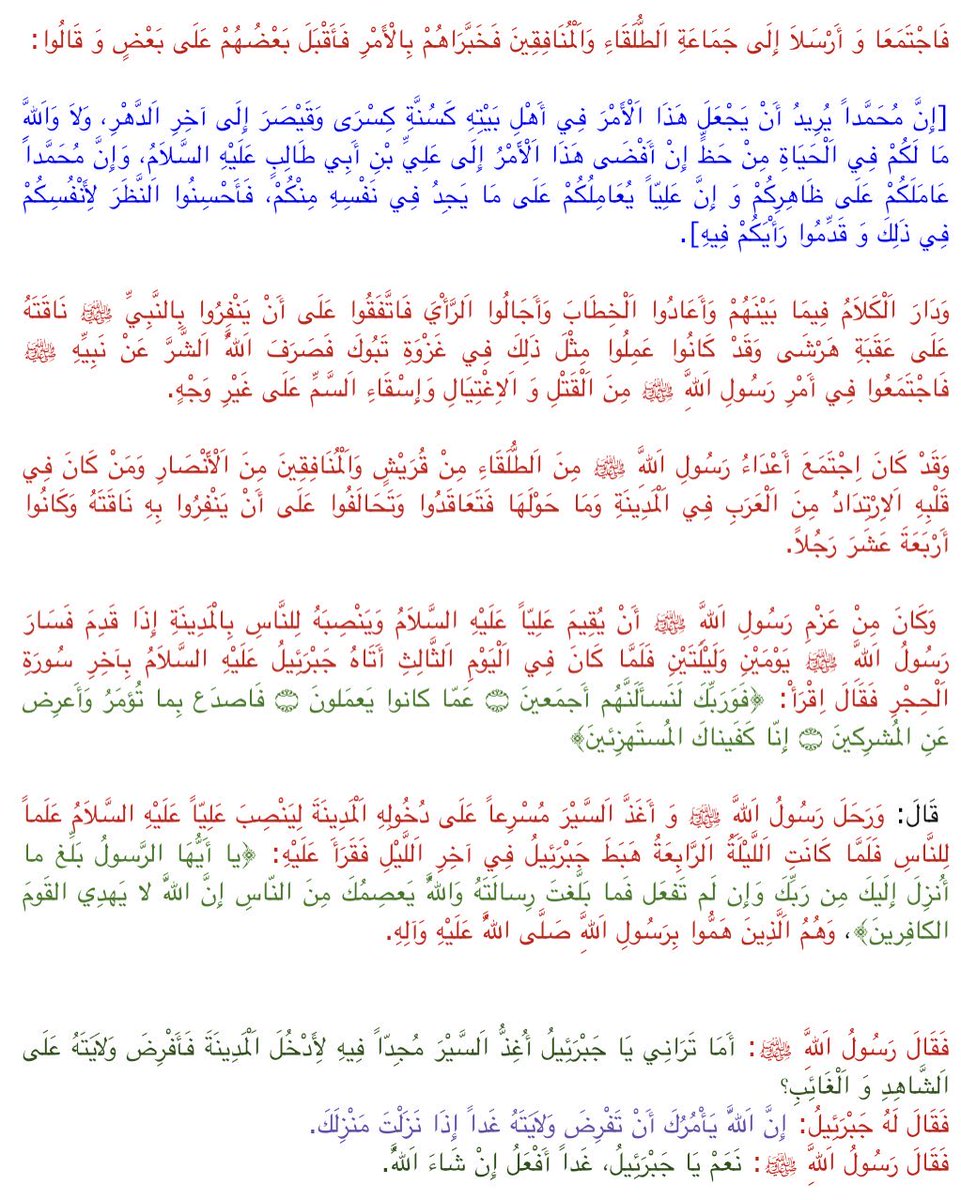 فَاجْتَمَعَا وَ أَرْسَلاَ إِلَى جَمَاعَةِ اَلطُّلَقَاءِ وَاَلْمُنَافِقِينَ فَخَبَّرَاهُمْ بِالْأَمْرِ فَأَقْبَلَ بَعْضُهُمْ عَلَى بَعْضٍ وَ قَالُوا:
[إِنَّ مُحَمَّداً يُرِيدُ أَنْ يَجْعَلَ هَذَا اَلْأَمْرَ فِي أَهْلِ بَيْتِهِ كَسُنَّةِ كِسْرَى وَقَيْصَرَ إِلَى آخِرِ اَلدَّهْرِ، وَلاَ وَاَللَّهِ
مَا لَكُمْ فِي اَلْحَيَاةِ مِنْ حَظٍّ إِنْ أَفْضَى هَذَا اَلْأَمْرُ إِلَى عَلِيِّ بْنِ أَبِي طَالِبٍ عَلَيْهِ السَّلاَمُ، وَإِنَّ مُحَمَّداً
عَامَلَكُمْ عَلَى ظَاهِرِكُمْ وَ إِنَّ عَلِيّاً يُعَامِلُكُمْ عَلَى مَا يَجِدُ فِي نَفْسِهِ مِنْكُمْ، فَأَحْسِنُوا اَلنَّظَرَ لِأَنْفُسِكُمْ
فِي ذَلِكَ وَ قَدِّمُوا رَأْيَكُمْ فِيهِ].
وَدَارَ اَلْكَلاَمُ فِيمَا بَيْنَهُمْ وَأَعَادُوا اَلْخِطَابَ وَأَجَالُوا اَلرَّأْيَ فَاتَّفَقُوا عَلَى أَنْ يَنْفِرُوا بِالنَّبِيِّ ﷺ نَاقَتَهُ
عَلَى عَقَبَةِ هَرْشَى وَقَدْ كَانُوا عَمِلُوا مِثْلَ ذَلِكَ فِي غَزْوَةِ تَبُوكَ فَصَرَفَ اَللَّهُ اَلشَّرَّ عَنْ نَبِيِّهِ ﷺ
فَاجْتَمَعُوا فِي أَمْرِ رَسُولِ اَللَّهِ ﷺ مِنَ اَلْقَتْلِ وَ اَلاِغْتِيَالِ وَإِسْقَاءِ اَلسَّمِّ عَلَى غَيْرِ وَجْهٍ.
وَقَدْ كَانَ اِجْتَمَعَ أَعْدَاءُ رَسُولِ اَللَّهِ ﷺ مِنَ اَلطُّلَقَاءِ مِنْ قُرَيْشٍ وَاَلْمُنَافِقِينَ مِنَ اَلْأَنْصَارِ وَمَنْ كَانَ فِي
قَلْبِهِ اَلاِرْتِدَادُ مِنَ اَلْعَرَبِ فِي اَلْمَدِينَةِ وَمَا حَوْلَهَا فَتَعَاقَدُوا وَتَحَالَفُوا عَلَى أَنْ يَنْفِرُوا بِهِ نَاقَتَهُ وَكَانُوا
أَرْبَعَةَ عَشَرَ رَجُلاً.
وَكَانَ مِنْ عَزْمِ رَسُولِ اَللَّهِ ﷺ أَنْ يُقِيمَ عَلِيّاً عَلَيْهِ السَّلاَمُ وَيَنْصِبَهُ لِلنَّاسِ بِالْمَدِينَةِ إِذَا قَدِمَ فَسَارَ
رَسُولُ اَللَّهِ ﷺ يَوْمَيْنِ وَلَيْلَتَيْنِ فَلَمَّا كَانَ فِي اَلْيَوْمِ اَلثَّالِثِ أَتَاهُ جَبْرَئِيلُ عَلَيْهِ السَّلاَمُ بِآخِرِ سُورَةِ
اَلْحِجْرِ فَقَالَ اِقْرَأْ: ﴿فَوَرَبِّكَ لَنَسأَلَنَّهُم أَجمَعينَ ۝ عَمّا كانوا يَعمَلونَ ۝ فَاصدَع بِما تُؤمَرُ وَأَعرِض
عَنِ المُشرِكينَ ۝ إِنّا كَفَيناكَ المُستَهزِئينَ﴾
قَالَ: وَرَحَلَ رَسُولُ اَللَّهِ ﷺ وَ أَغَذَّ اَلسَّيْرَ مُسْرِعاً عَلَى دُخُولِهِ اَلْمَدِينَةَ لِيَنْصِبَ عَلِيّاً عَلَيْهِ السَّلاَمُ عَلَماً
لِلنَّاسِ فَلَمَّا كَانَتِ اَللَّيْلَةُ اَلرَّابِعَةُ هَبَطَ جَبْرَئِيلُ فِي آخِرِ اَللَّيْلِ فَقَرَأَ عَلَيْهِ: ﴿يا أَيُّهَا الرَّسولُ بَلِّغ ما
أُنزِلَ إِلَيكَ مِن رَبِّكَ وَإِن لَم تَفعَل فَما بَلَّغتَ رِسالَتَهُ وَاللَّهُ يَعصِمُكَ مِنَ النّاسِ إِنَّ اللَّهَ لا يَهدِي القَومَ
الكافِرينَ﴾، وَهُمُ اَلَّذِينَ هَمُّوا بِرَسُولِ اَللَّهِ صَلَّى اَللَّهُ عَلَيْهِ وَآلِهِ.
فَقَالَ رَسُولُ اَللَّهِ ﷺ: أَمَا تَرَانِي يَا جَبْرَئِيلُ أُغِذُّ اَلسَّيْرَ مُجِدّاً فِيهِ لِأَدْخُلَ اَلْمَدِينَةَ فَأَفْرِضَ وَلاَيَتَهُ عَلَى
اَلشَّاهِدِ وَ اَلْغَائِبِ؟
فَقَالَ لَهُ جَبْرَئِيلُ: إِنَّ اَللَّهَ يَأْمُرُكَ أَنْ تَفْرِضَ وَلاَيَتَهُ غَداً إِذَا نَزَلْتَ مَنْزِلَكَ.
فَقَالَ رَسُولُ اَللَّهِ ﷺ: نَعَمْ يَا جَبْرَئِيلُ، غَداً أَفْعَلُ إِنْ شَاءَ اَللَّهُ.